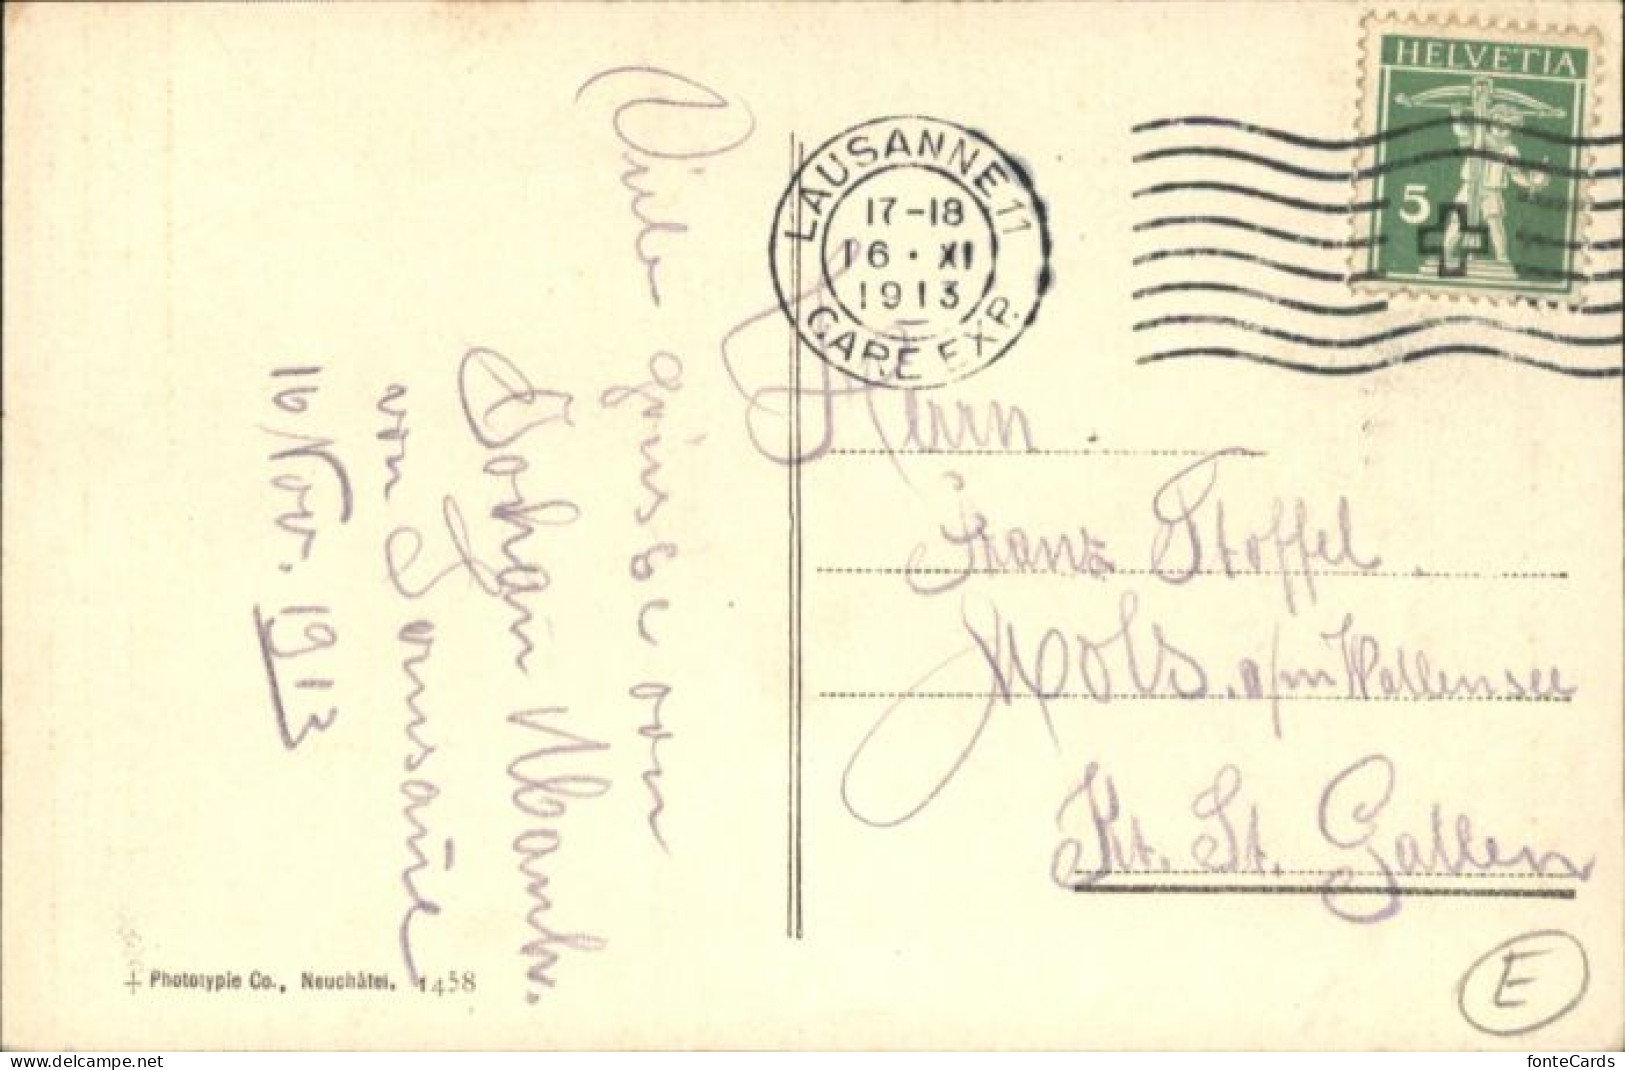 HELVETIA
5
LAUSANNE 11
17-18
16 · XI
1913
GARE EXP.
Viele grüsse von
Johan
von Lausane
16 Nov. 1913
Herrn
Franz Stoffel.
Mols. a/m Wallensee
Kt. St. Gallen
Phototypie Co., Neuchâtel. 1458
E
delcampe.net
fonteCards